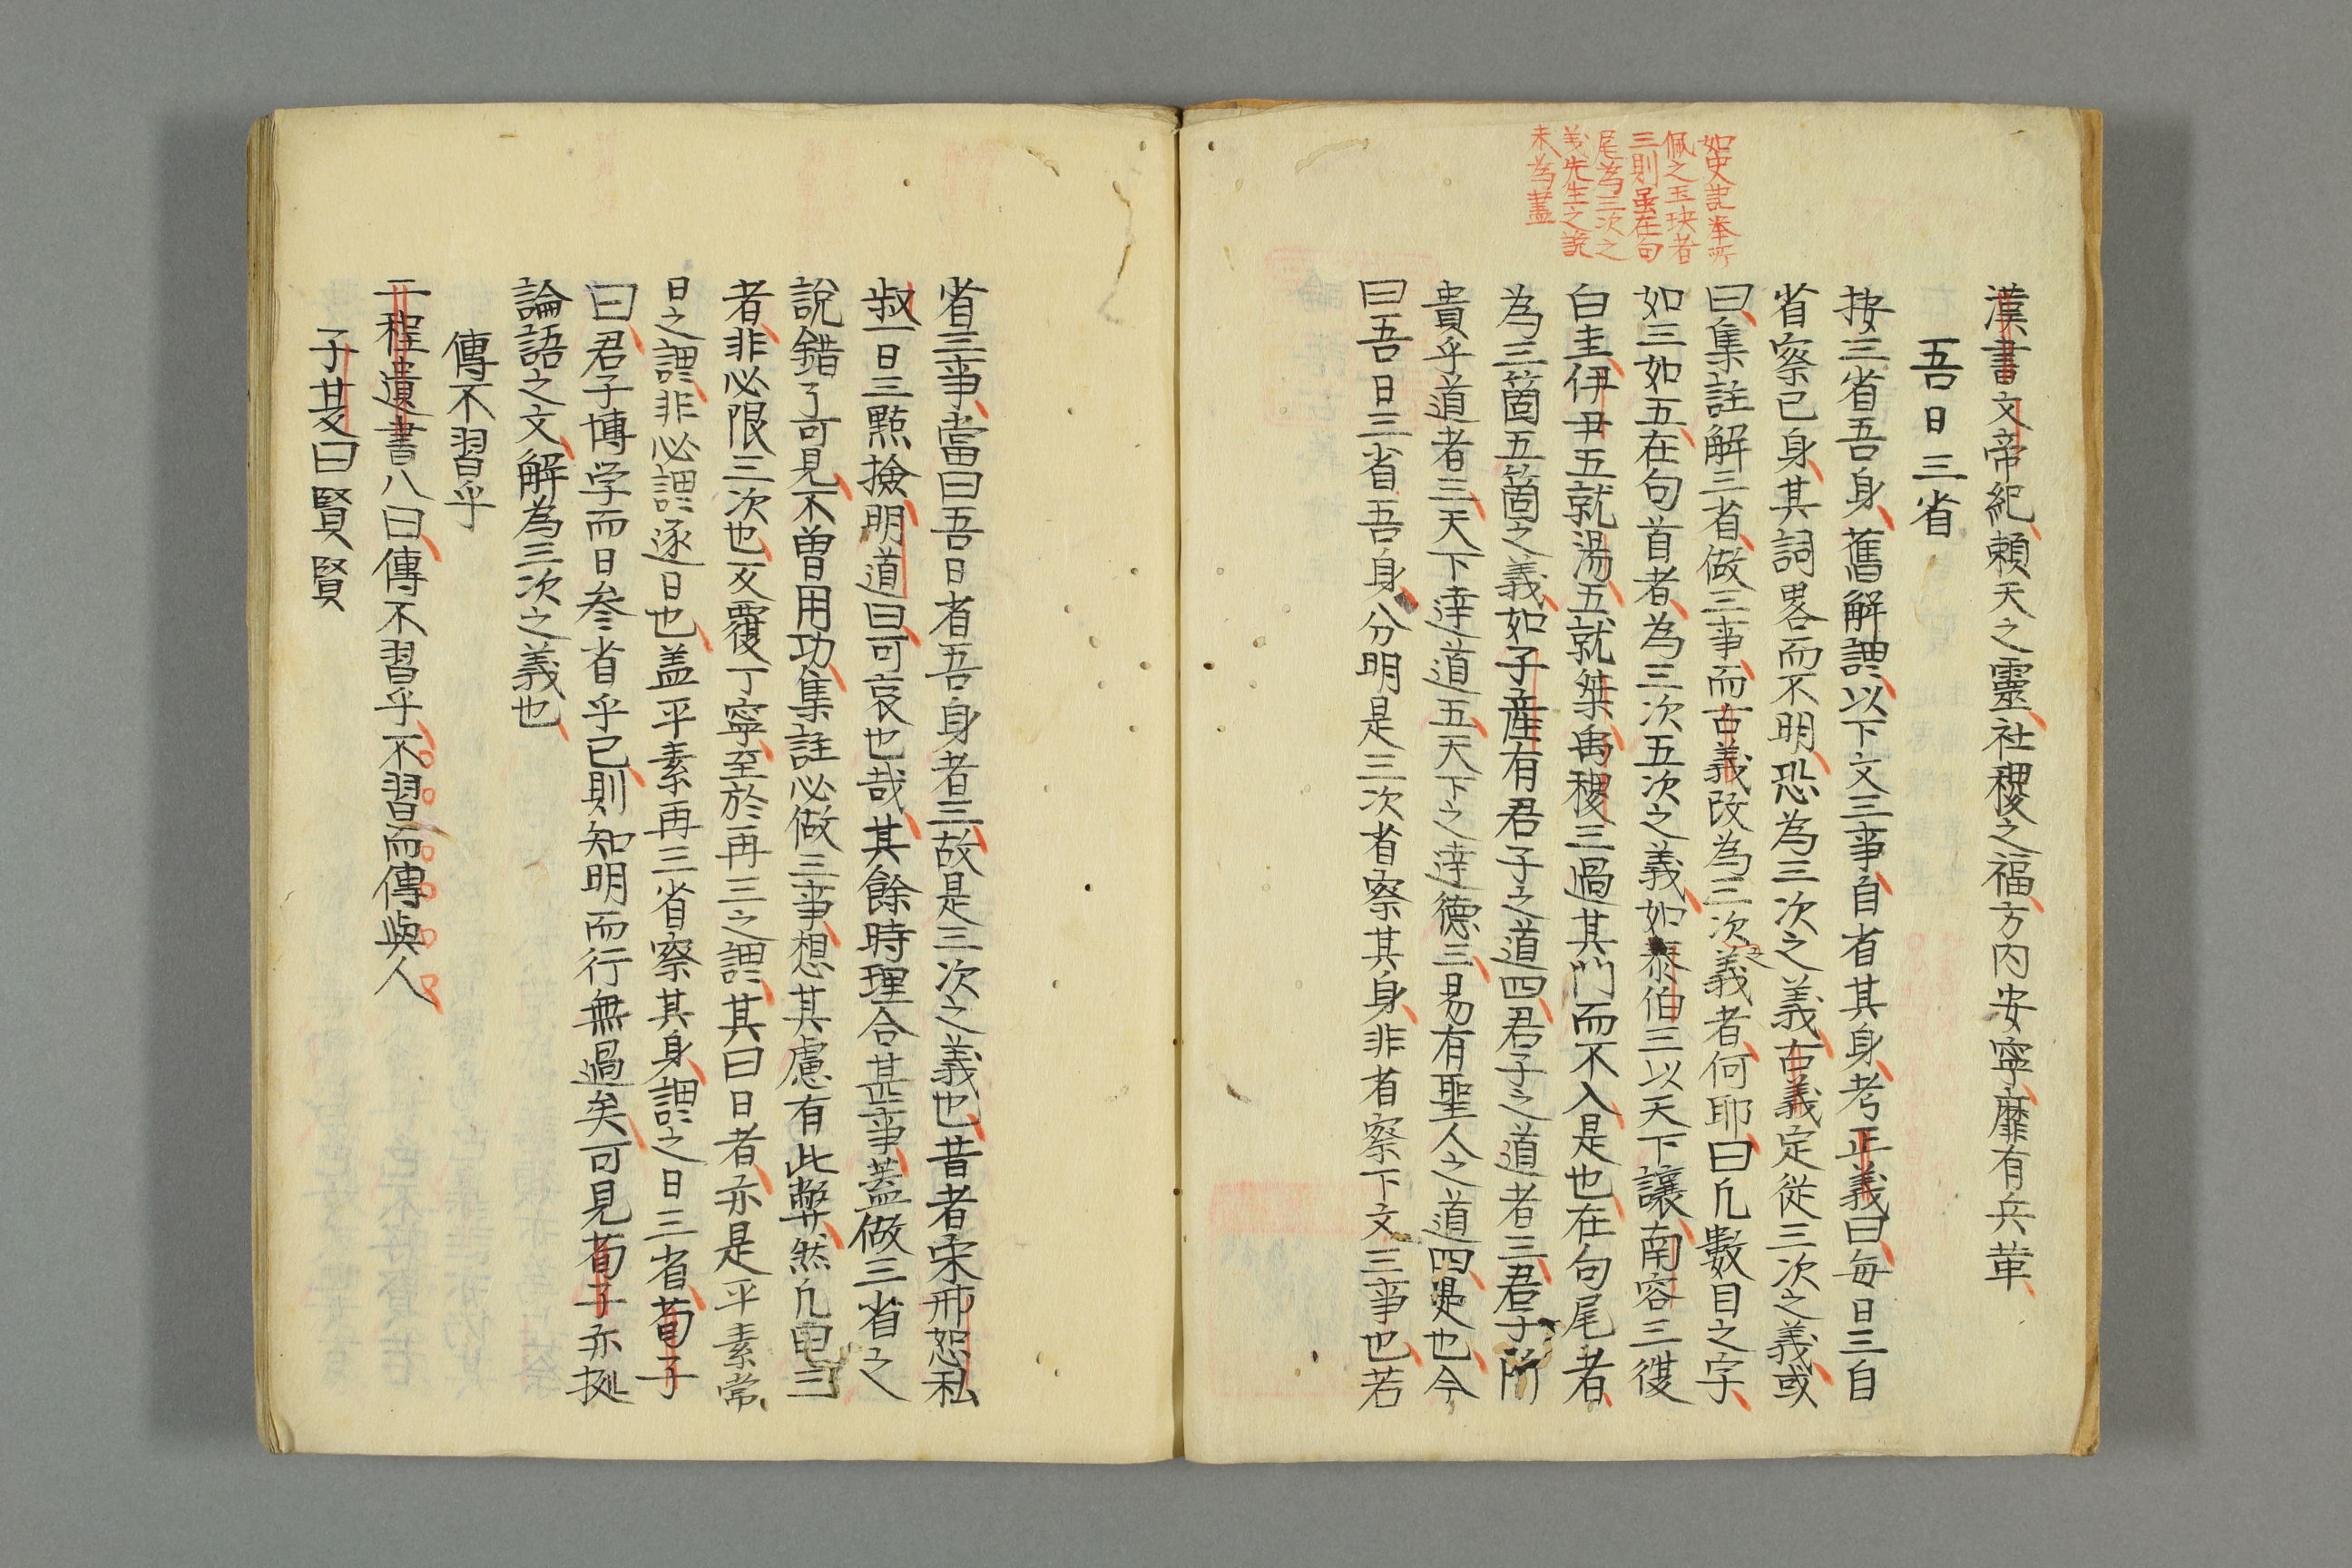 如史記挙所
佩之玉玦者
三則虽在句
尾為三次之
義先生之說
未為蓋
漢書文帝紀頼天之靈社稷之福方内安寧靡有兵革
吾日三省
按三省吾身舊解謂以下文三事自省其身考正義曰毎日三自
省察己身其詞畧而不明恐為三次之義古義定從三次之義或
曰集註解三省做三事而古義改為三次之義者何耶曰凢數目之字
如三如五在句首者為三次五次之義如泰伯三以天下讓南容三復
白圭伊尹五就湯五就桀禹稷三過其門而不入是也在句尾者
為三箇五箇之義如子産有君子之道四君子之道者三君子所
貴乎道者三天下達道五天下之達德三易有聖人之道四是也今
曰吾日三省吾身分明是三次省察其身非省察下文三事也若
省三事當曰吾日省吾身者三故是三次之義也昔者宋邢恕私
叔一日三點撿明道曰可哀也哉其餘時理合甚事蓋做三省之
說錯了可見不曽用功集註必做三事想其慮有此弊然凢曰三
者非必限三次也反覆丁寧至於再三之謂其曰日者亦是平素常
日之謂非必謂逐日也盖平素再三省察其身謂之日三省荀子
曰君子博学而日参省乎己則知明而行無過矣可見荀子亦拠
論語之文解為三次之義也
傳不習乎
二程遺書八曰傳不習乎不習而傳與人
子夏曰賢賢